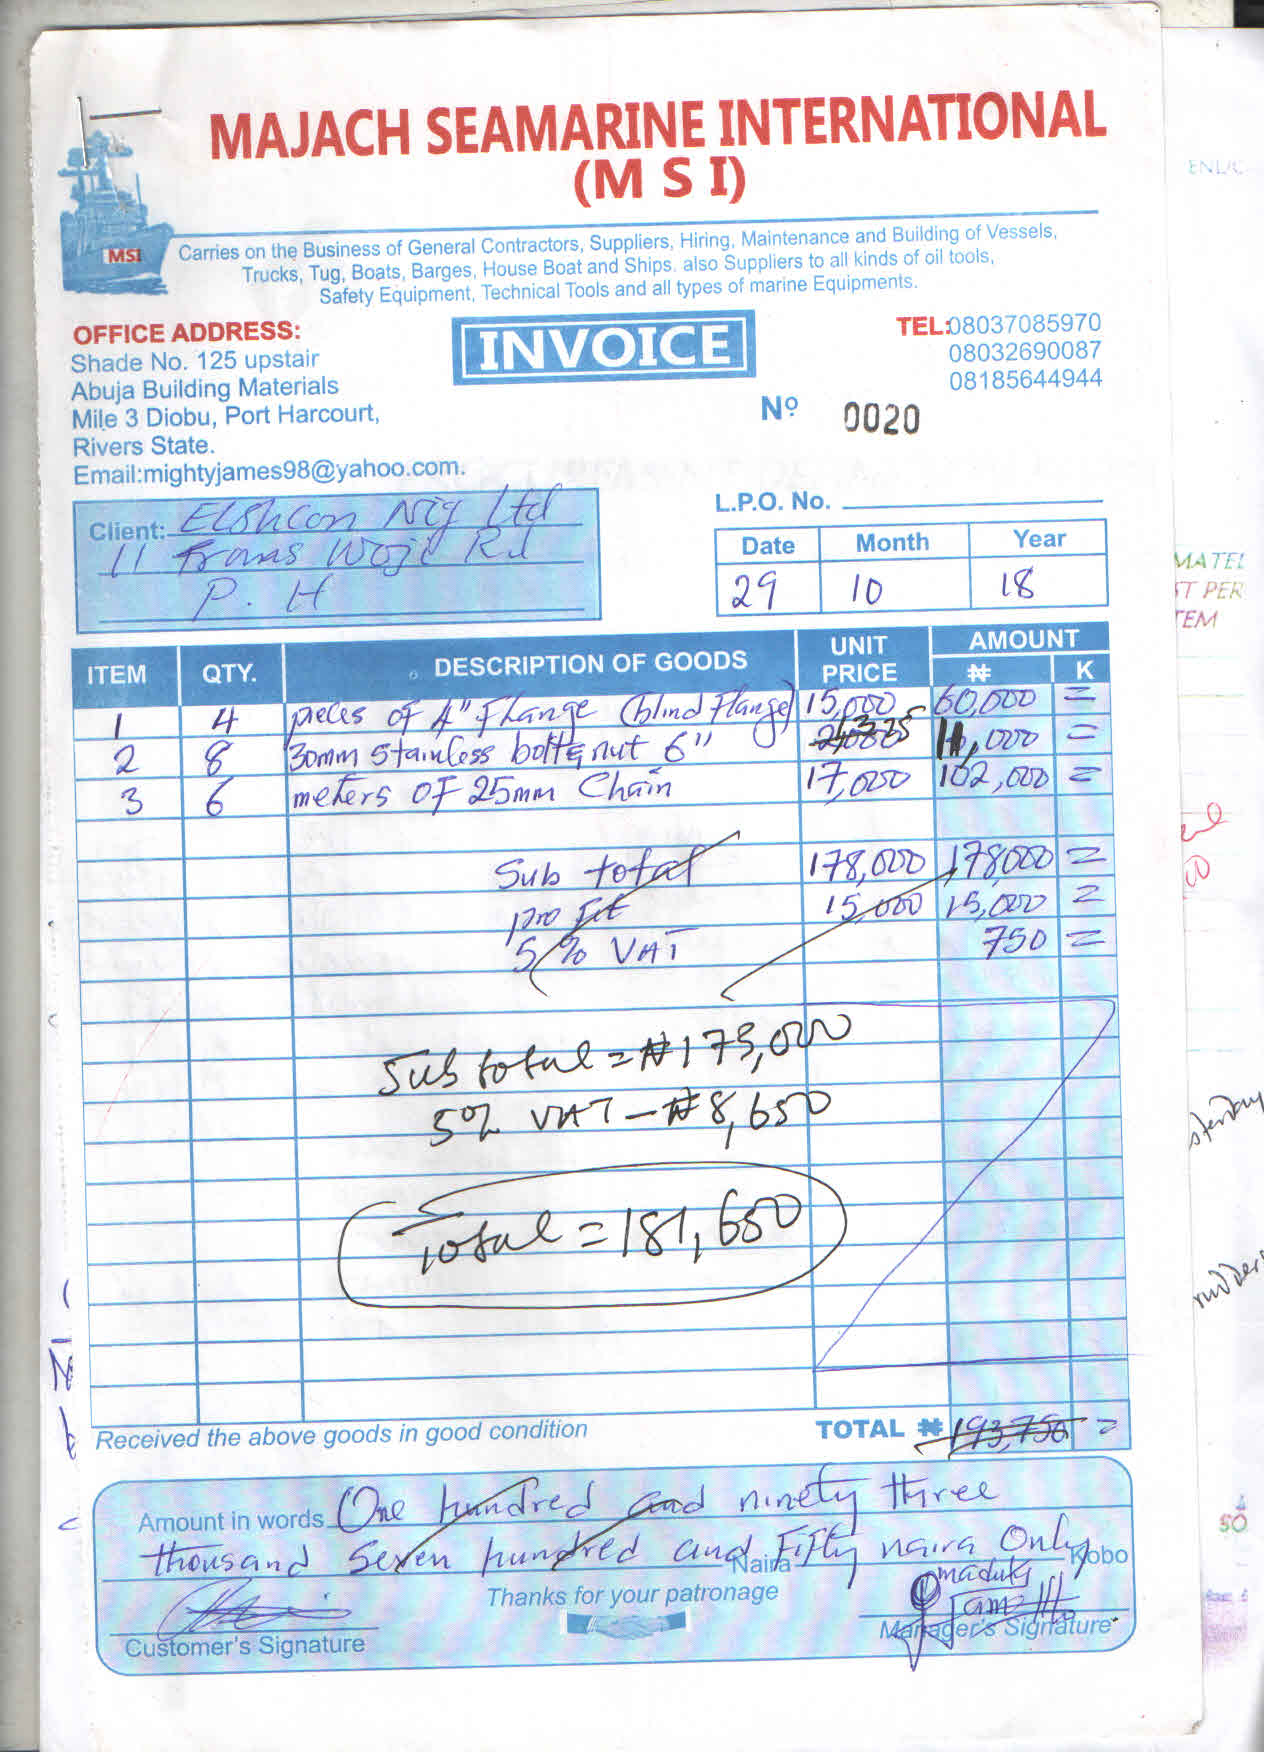 MAJACH SEAMARINE INTERNATIONAL
(M S I)
MSI
Carries on the Business of General Contractors, Suppliers, Hiring, Maintenance and Building of Vessels,
Trucks, Tug, Boats, Barges, House Boat and Ships. also Suppliers to all kinds of oil tools,
Safety Equipment, Technical Tools and all types of marine Equipments.
OFFICE ADDRESS:
Shade No. 125 upstair
Abuja Building Materials
Mile 3 Diobu, Port Harcourt,
Rivers State.
Email:mightyjames98@yahoo.com.
INVOICE
TEL:08037085970
08032690087
08185644944
Nº 0020
Client: Elshcon Nig Ltd
11 Trans Woji Rd
P. H
L.P.O. No.
Date Month Year
29 10 18
ITEM QTY. DESCRIPTION OF GOODS UNIT PRICE AMOUNT ₦ K
1 4 pieces of 4" Flange (blind Flange) 15,000 60,000 =
2 8 30mm stainless bolt & nut 6" 1375 11,000 =
3 6 meters of 25mm Chain 17,000 102,000 =
Sub total 178,000 178,000 =
profit 15,000 15,000 =
5% VAT 750 =
Sub total = ₦173,000
5% VAT - ₦8,650
Total = 181,650
Received the above goods in good condition
TOTAL ₦ 193,750 =
Amount in words One hundred and ninety three
thousand seven hundred and Fifty naira Only
Naira Kobo
Thanks for your patronage
Customer's Signature
Manager's Signature
MATEL
ST PER
TEM
50